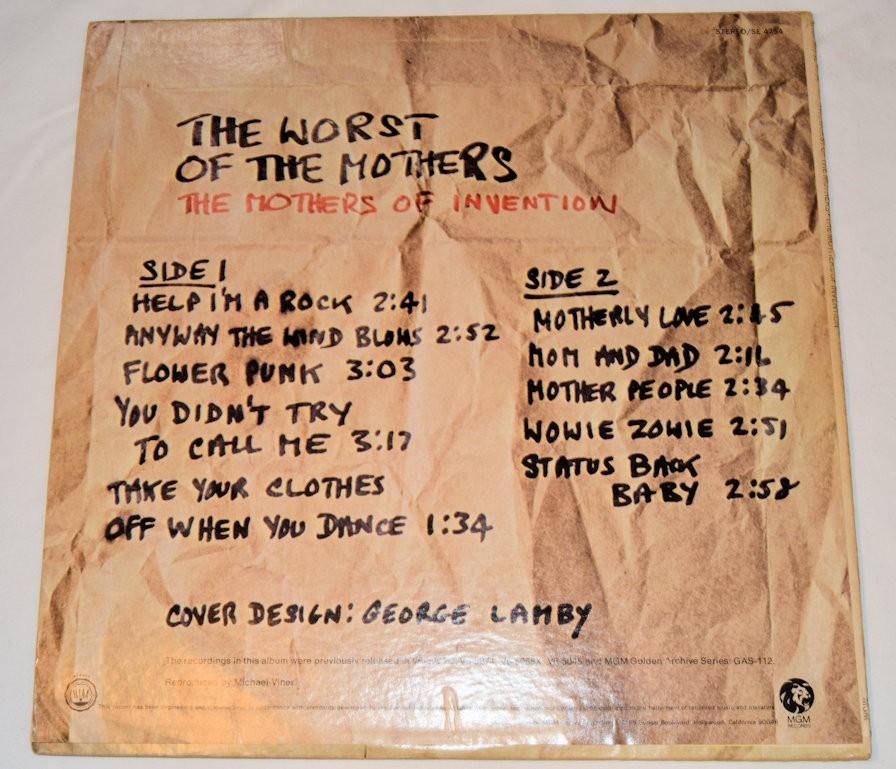 STEREO/SE 4754
THE WORST
OF THE MOTHERS
THE MOTHERS OF INVENTION
SIDE 1
HELP I'M A ROCK 2:41
ANYWAY THE WIND BLOWS 2:52
FLOWER PUNK 3:03
YOU DIDN'T TRY
TO CALL ME 3:17
TAKE YOUR CLOTHES
OFF WHEN YOU DANCE 1:34
SIDE 2
MOTHERLY LOVE 2:45
MOM AND DAD 2:16
MOTHER PEOPLE 2:34
WOWIE ZOWIE 2:51
STATUS BACK
BABY 2:58
COVER DESIGN: GEORGE LAMBY
The recordings in this album were previously released in and MGM Golden Archive Series: GAS-112
by Michael Viner
Hollywood, California
MGM
RECORDS